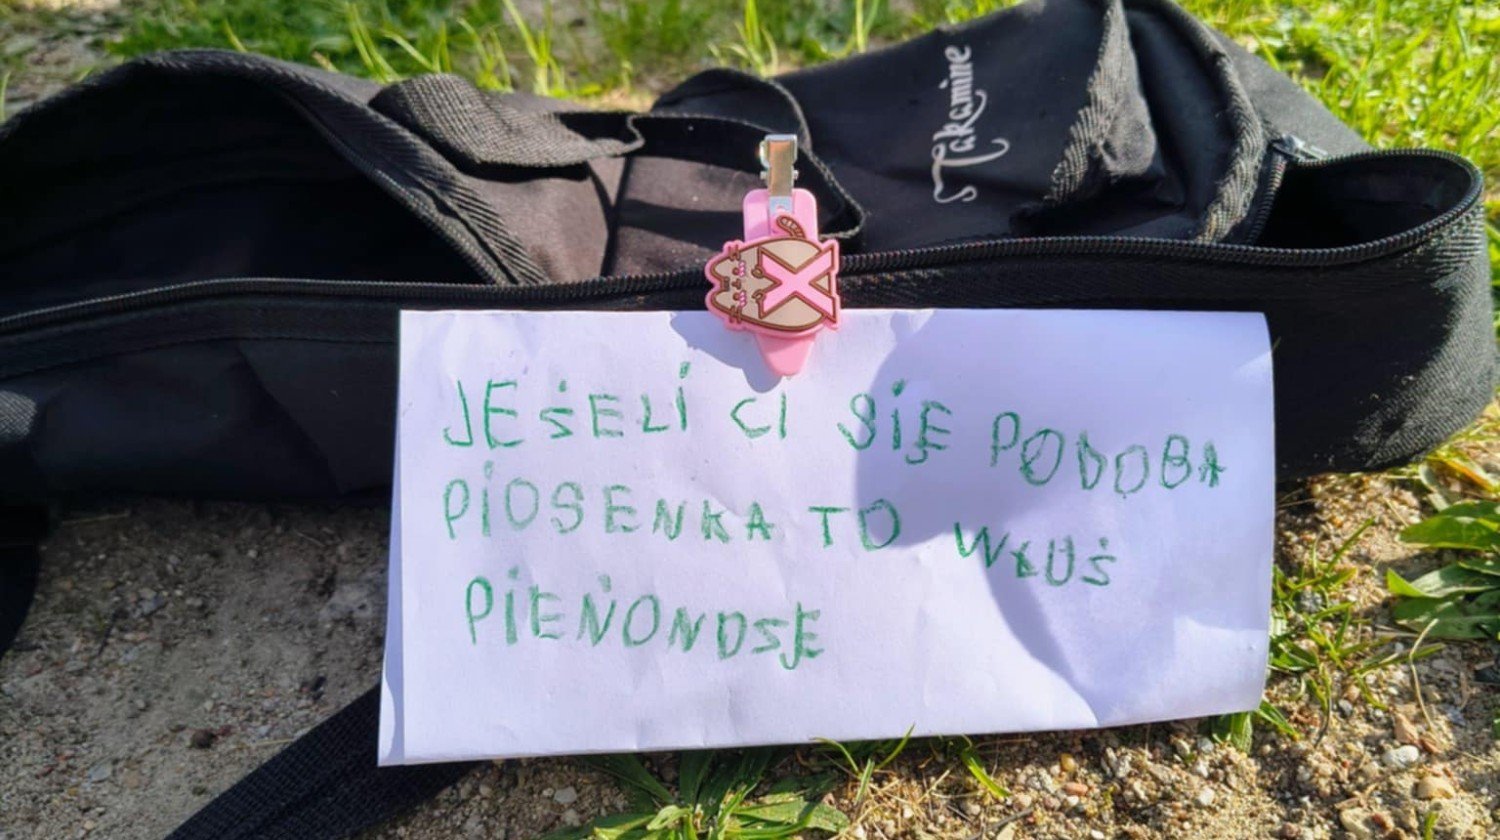 Takamine
JEŚELI CI SIĘ PODOBA
PIOSENKA TO WŁUŚ
PIEŃONDSE